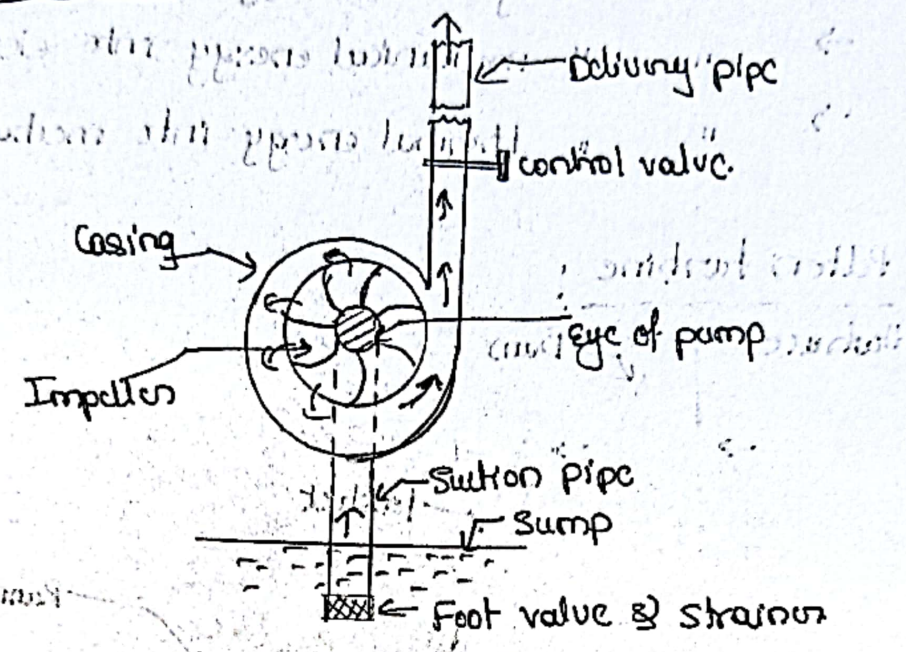 Delivery pipe
control valve.
Casing
Eye of pump
Impeller
Suction pipe
Sump
Foot valve & strainer